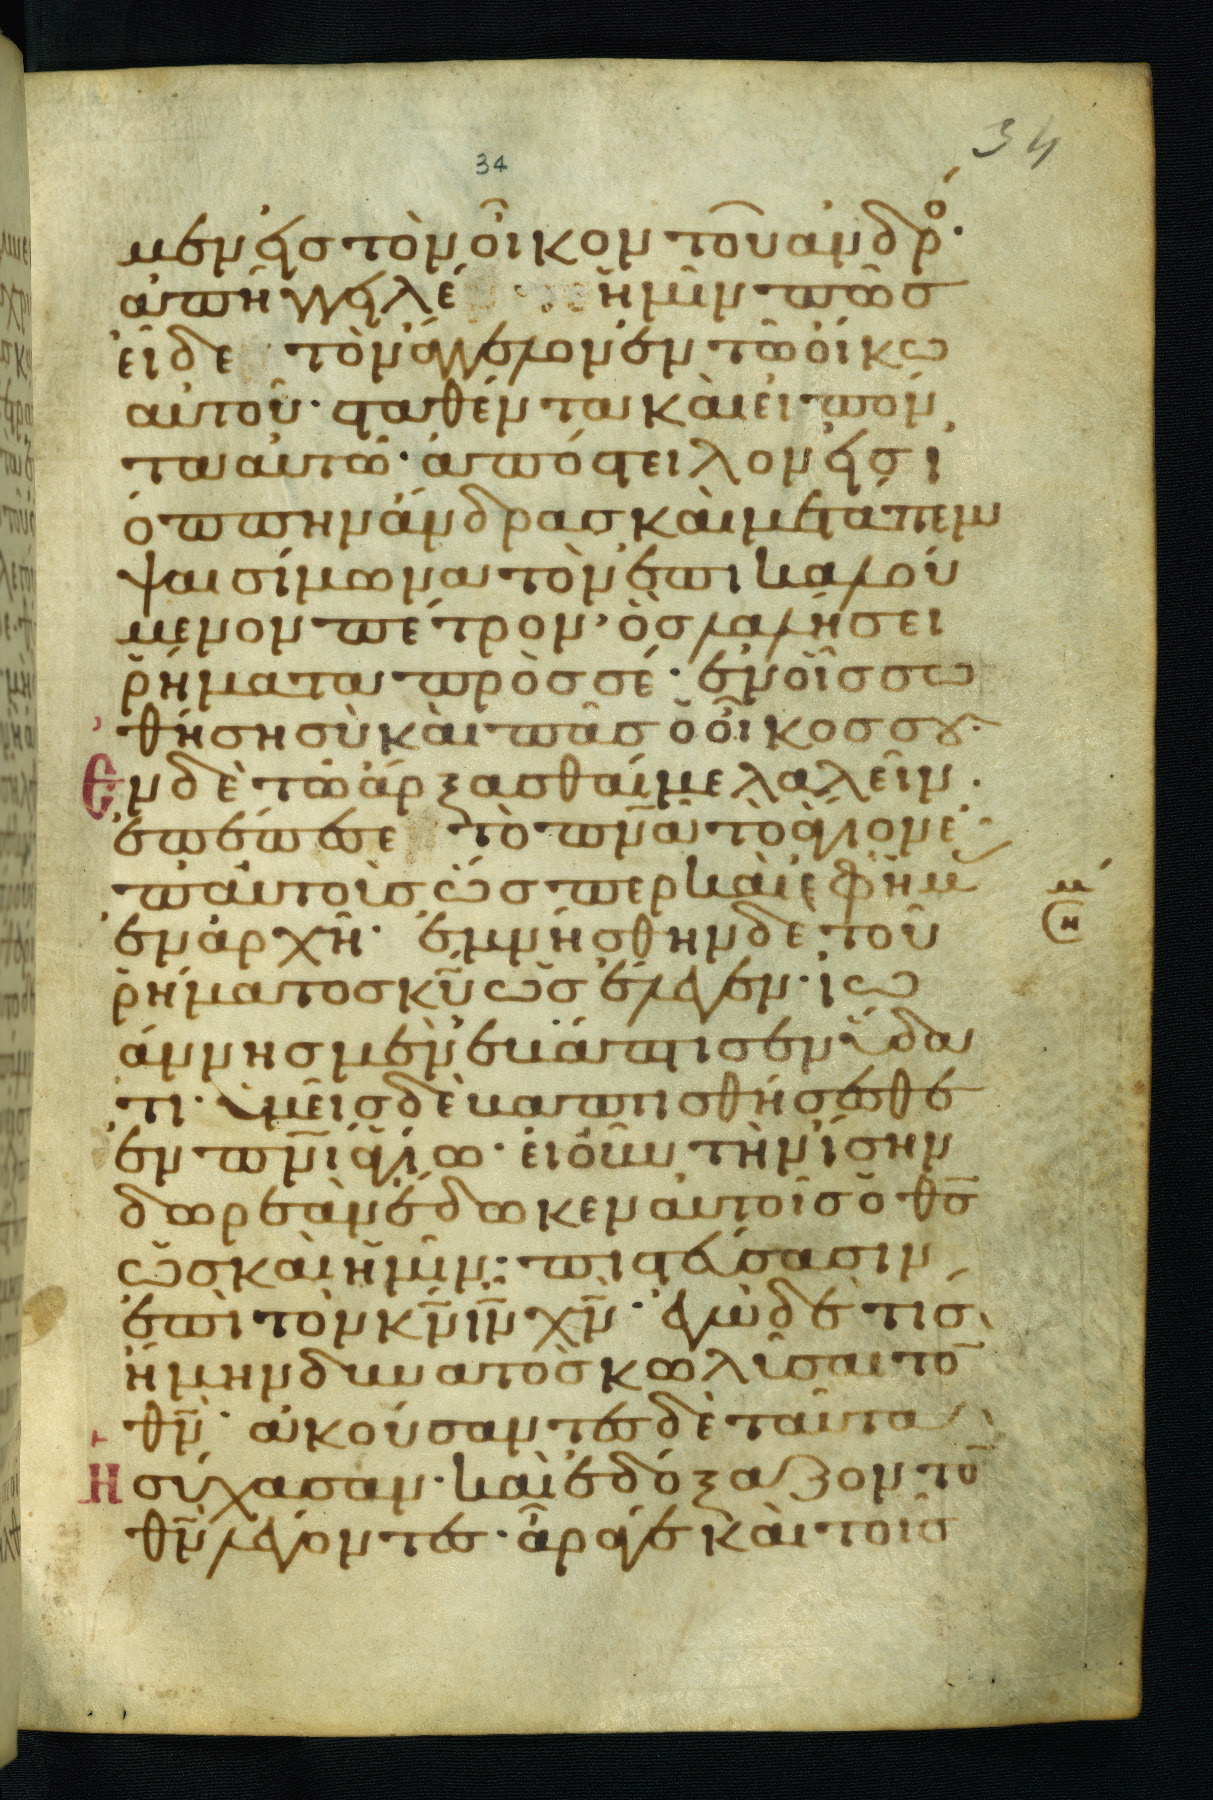 34
34
μεν εἰς τὸν οἶκον τοῦ ἀνδρό·
ἀπήγγειλέ ἡμῖν πῶς
εἶδε τὸν ἄγγελον ἐν τῶ οἴκω
αὐτοῦ· σταθέντα καὶ εἰπόν
τα αὐτῶ· ἀπόστειλον εἰς ἰ
όππην ἄνδρας καὶ μετάπεμ
ψαι σίμωνα τὸν ἐπικαλού
μενον πέτρον, ὃς λαλήσει
ῥήματα πρὸς σέ· ἐν οἷς σω
θήση σὺ καὶ πᾶς ὁ οἶκος σου·
Ἐν δὲ τῶ ἄρξασθαί με λαλεῖν·
ἐπέπεσε τὸ πνᾶ τὸ ἅγιον ἐ
π' αὐτοὺς ὥσπερ καὶ ἐφ' ἡμ
ἐν ἀρχῆ· ἐμνήσθην δὲ τοῦ
ῥήματος κυ ὡς ἔλεγεν· ἰω
άννης μὲν ἐβάπτισεν ὕδα
τι· ὑμεῖς δὲ βαπτισθήσεσθε
ἐν πνι ἁγίω· εἰ οὖν τὴν ἴσην
δωρεὰν ἔδωκεν αὐτοῖς ὁ θς
ὡς καὶ ἡμῖν· πιστεύσασιν
ἐπὶ τὸν κν ιν χν· ἐγὼ δὲ τίς
ἤμην δυνατὸς κωλῦσαι το
θν· ἀκούσαντες δὲ ταῦτα
Ἡσύχασαν· καὶ ἐδόξαζον το
θν λέγοντες· ἄραγε καὶ τοῖς